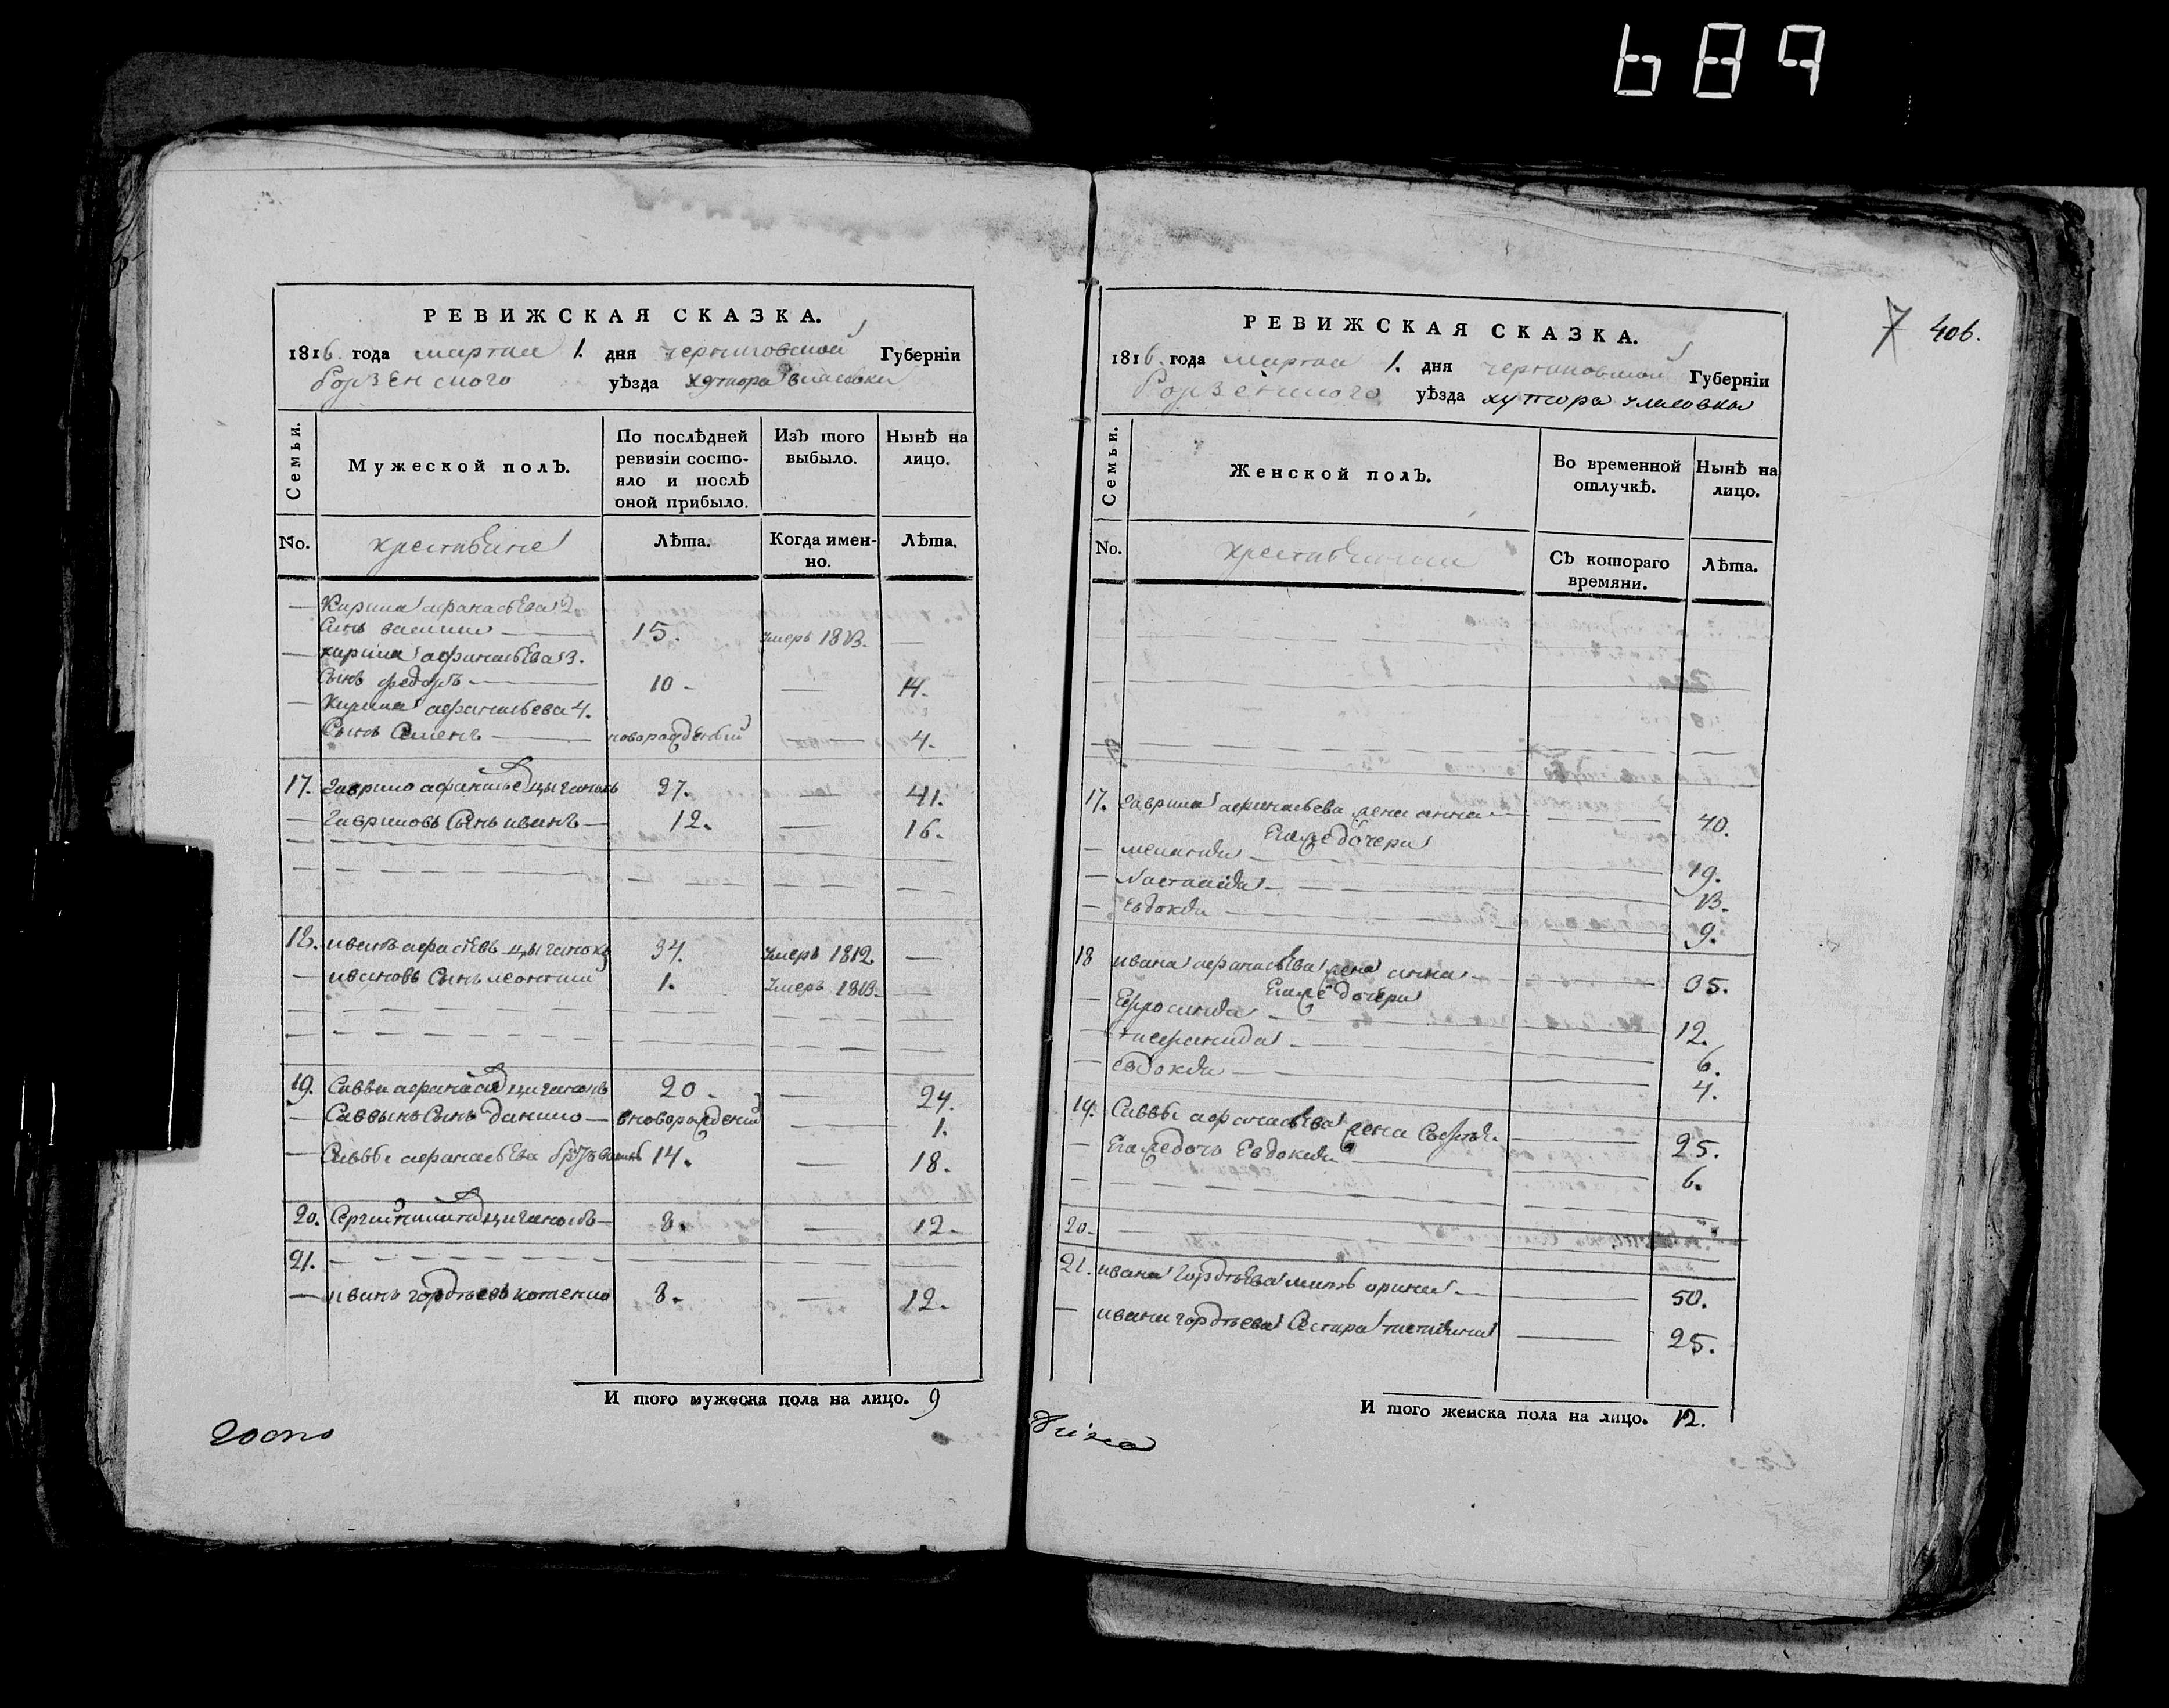 689
РЕВИЖСКАЯ СКАЗКА.
1816 года марта 1. дня черниговской Губерніи
борзенского уѣзда хутора
Семьи.
Мужеской полъ.
По послѣдней ревизіи состояло и послѣ оной прибыло.
Изъ того выбыло.
Нынѣ на лицо.
No.
крестьяне
Лѣта.
Когда именно.
Лѣта.
— Кирила афанасьева 2.
Синъ василий — 15. умеръ 1813. —
— кирила афанасьева 3.
Сынъ федоръ — 10 — — 14.
— Кирила афанасьева 4.
Сынъ Семенъ — новорожденый — 4.
17. гаврило афанасьев цыганокъ 37. — 41.
— Гавриловъ Сынъ иванъ — 12. — 16.
18. иванъ цыганокъ 34. умеръ 1812. —
— ивановъ Сынъ леонтий 1. умеръ 1813. —
19. Савва цыганокъ 20 — — 24.
— Саввинъ Сынъ данило — новорожденй — 1.
— Саввы афанасьева братъ 14. — 18.
20. Сергий никитин цыганокъ — 8. — 12.
21.
— иванъ гордѣевъ котенко 8. — 12.
И того мужеска пола на лицо. 9
7 406.
РЕВИЖСКАЯ СКАЗКА.
1816 года марта 1. дня черниговской Губерніи
Борзенского уѣзда хутора
Семьи.
Женской полъ.
Во временной отлучкѣ.
Нынѣ на лицо.
No.
Съ котораго времяни.
Лѣта.
17. гаврила афанасьева жена анна — 40.
Егожъ дочери
— меланъя — 19.
— Настасия — 13.
— Евдокия — 9.
18 ивана афанасьева жена анна — 35.
Егожъ дочери
— Ефросиния — 12.
— 6.
— евдокия — 4.
19. Саввы афанасьева жена — 25.
— Егожъ дочь Евдокия — 6.
20.
21. ивана гордѣева мать орина — 50.
— ивана гордѣева Сестра татияна — 25.
И того женска пола на лицо. 12.